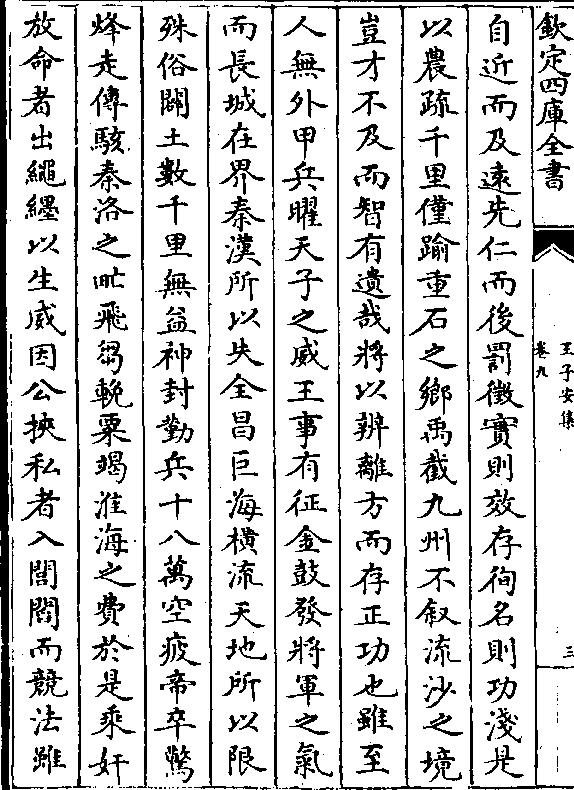 欽定四庫全書
王子安集
卷九
三
自近而及遠先仁而後罰徵實則效存徇名則功淺是
以農疏千里僅踰重石之鄉禹截九州不叙流沙之境
豈才不及而智有遺哉將以辨離方而存正功也雖至
人無外甲兵曜天子之威王事有征金鼓發將軍之氣
而長城在界秦漢所以失全昌巨海橫流天地所以限
殊俗闢土數千里無益神封勤兵十八萬空疲帝卒驚
烽走傳駭秦洛之甿飛芻輓粟竭淮海之費於是乘奸
放命者出繩纆以生威因公挾私者入閭閻而競法雖